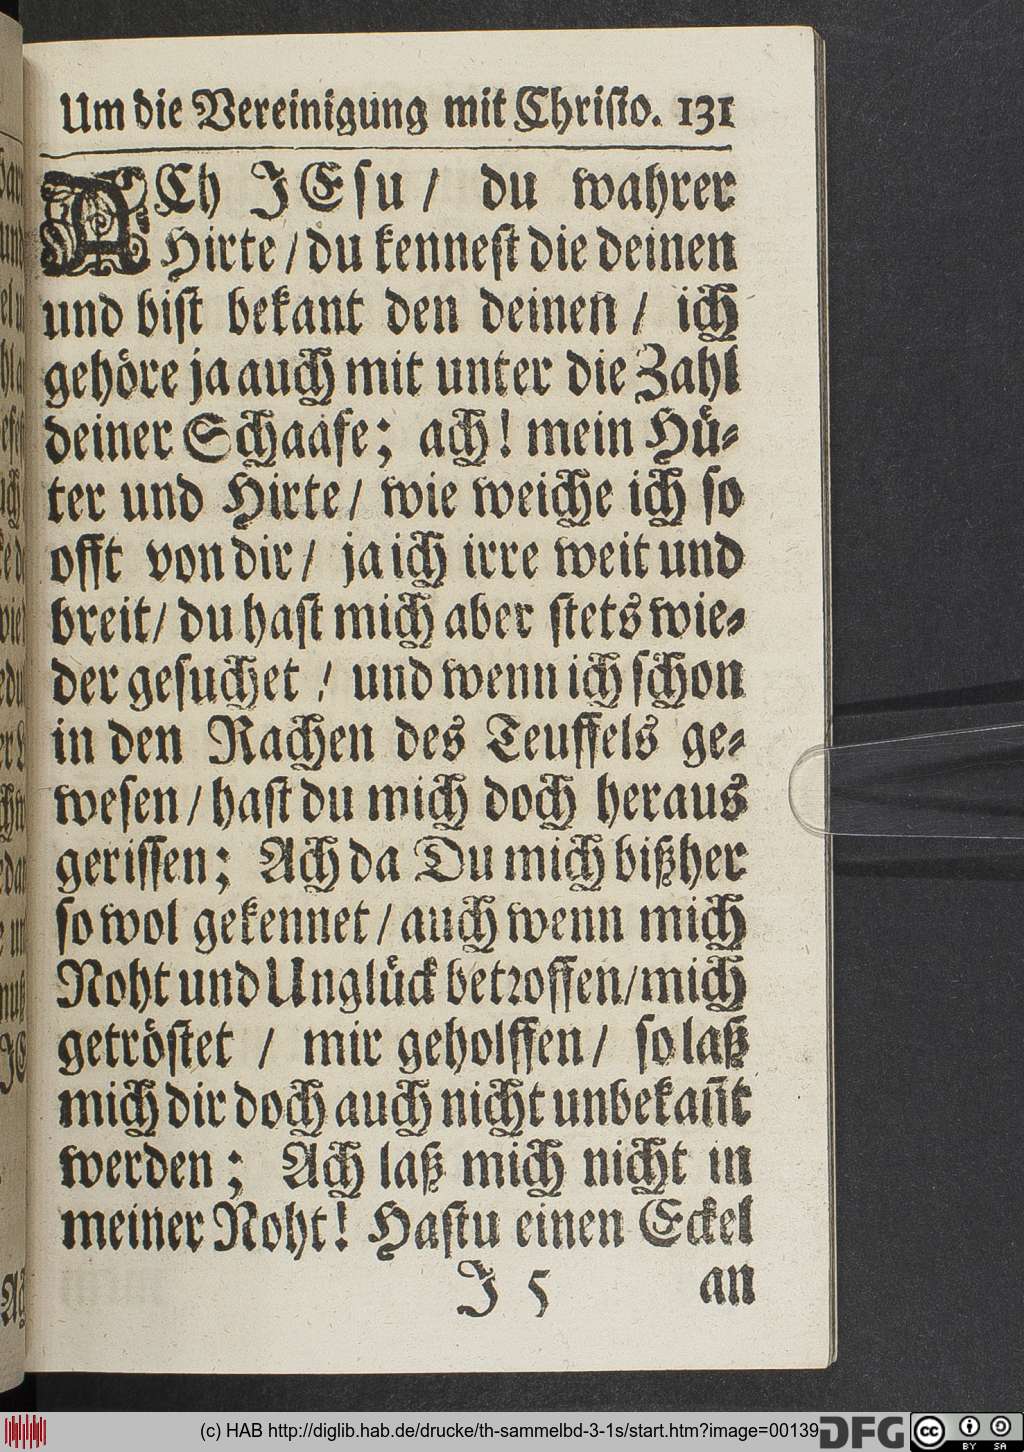 Um die Vereinigung mit Christo. 131
ACh JEsu / du wahrer
Hirte / du kennest die deinen
und bist bekant den deinen / ich
gehöre ja auch mit unter die Zahl
deiner Schaafe; ach! mein Hü-
ter und Hirte / wie weiche ich so
offt von dir / ja ich irre weit und
breit / du hast mich aber stets wie-
der gesuchet / und wenn ich schon
in den Rachen des Teuffels ge-
wesen / hast du mich doch heraus
gerissen; Ach da Du mich bißher
so wol gekennet / auch wenn mich
Noht und Unglück betroffen / mich
getröstet / mir geholffen / so laß
mich dir doch auch nicht unbekañt
werden; Ach laß mich nicht in
meiner Noht! Hastu einen Eckel
J 5 an
(c) HAB http://diglib.hab.de/drucke/th-sammelbd-3-1s/start.htm?image=00139
DFG cc BY SA